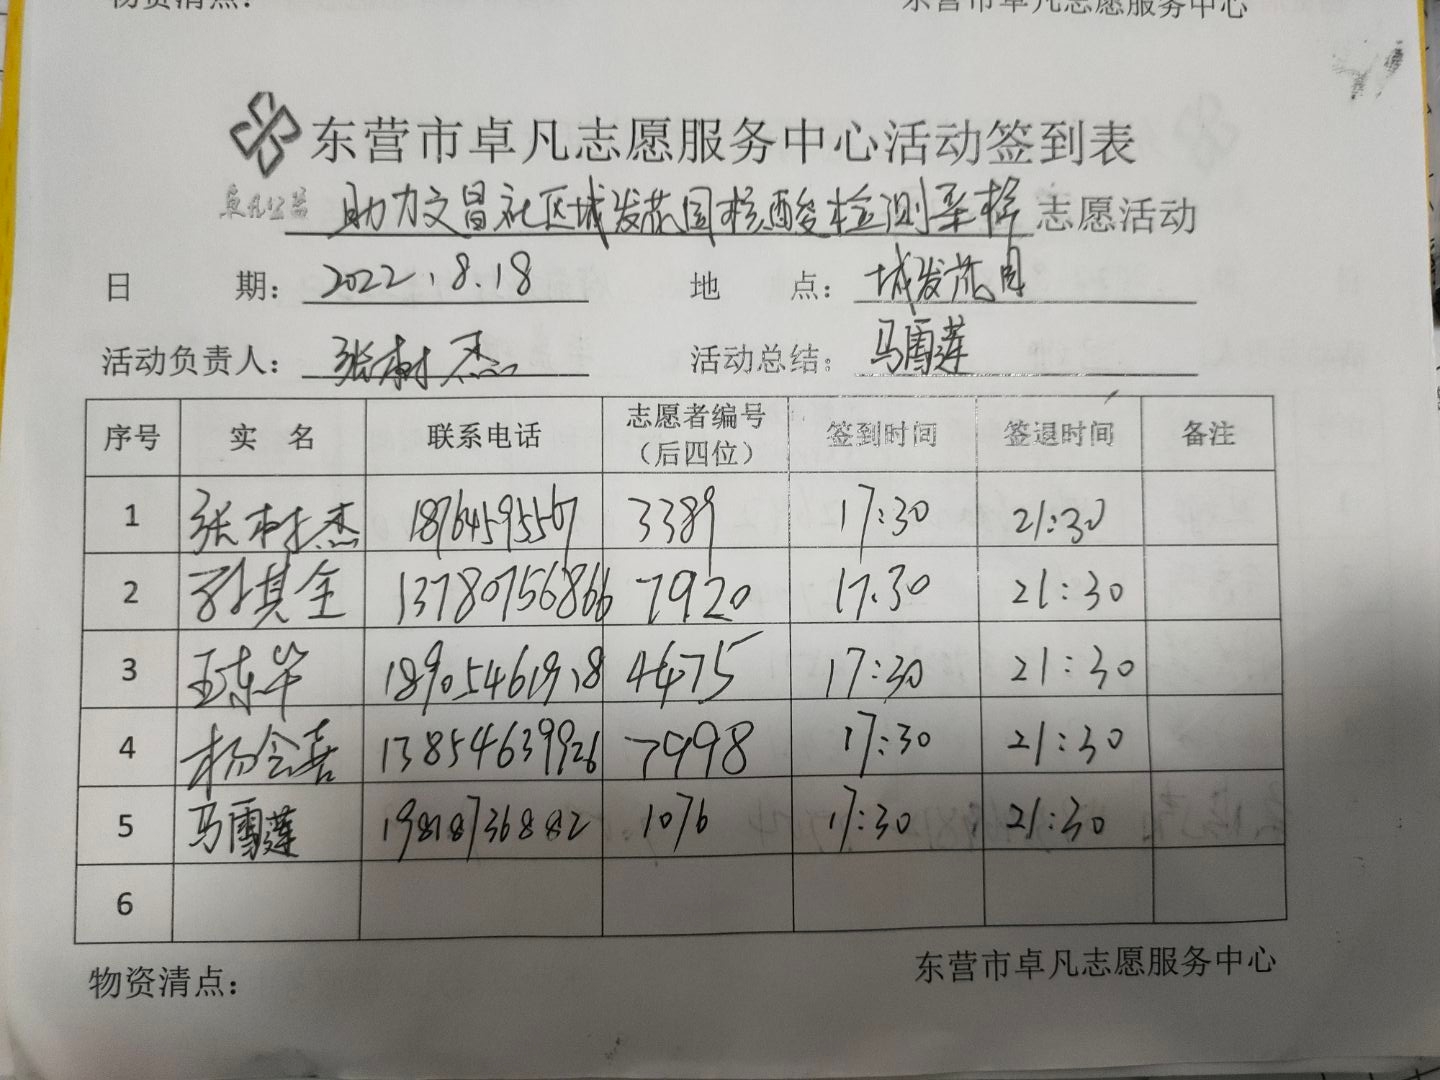 物资清点：
东营市卓凡志愿服务中心
东营市卓凡志愿服务中心活动签到表
卓凡公益
助力文昌社区城发花园核酸检测采样 志愿活动
日 期： 2022.8.18 地 点： 城发花园
活动负责人： 张树杰 活动总结： 马雪莲
序号 实 名 联系电话 志愿者编号（后四位） 签到时间 签退时间 备注
1 张树杰 18764595567 3389 17:30 21:30
2 孙其全 13780756866 7920 17:30 21:30
3 王东华 18905461918 4475 17:30 21:30
4 杨会喜 13854639926 7998 17:30 21:30
5 马雪莲 19818736882 1076 17:30 21:30
6
物资清点：
东营市卓凡志愿服务中心